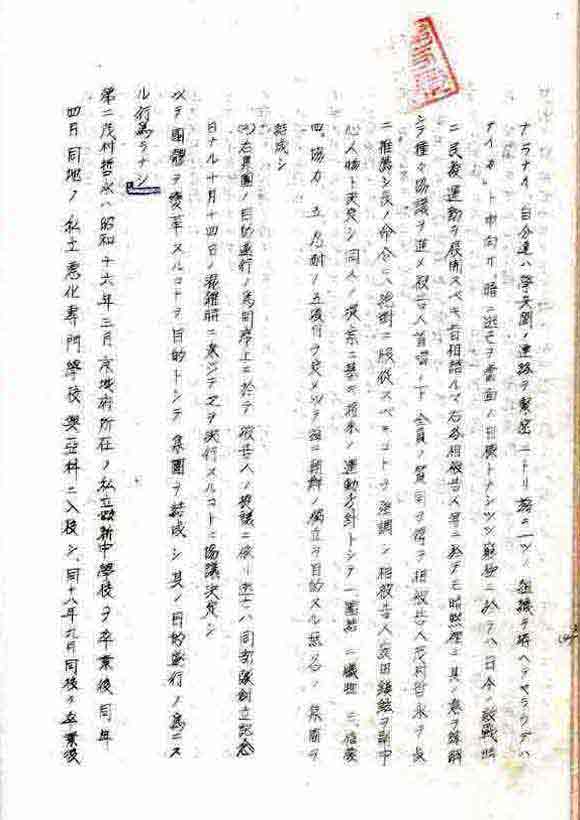 ナラナイ 自分達ハ学兵間ノ連絡ヲ緊密ニトリ 一ツノ組織ヲ ヘテヤラウデハ
ナイカ ト申向ケ 暗ニ逃亡ヲ当面ノ目標トナシツツ 窮極ニ於テハ日本ノ敗戦時
ニ民族運動ヲ展開スベキ旨相語ルヤ 右各相被告人等ニ於テモ暗黙裡ニ其ノ意ヲ諒解
シテ種々協議ヲ進メ 被告人首唱ノ下 全員ノ賛同ヲ得テ相被告人茂村哲永ヲ長
ニ推薦シ長ノ命令ニハ絶対ニ服従スベキコトヲ強調シ 相被告人 田 ヲ副中
心人物ト決定シ 同人ノ提案ニ基キ将来ノ運動方針トシテ一、団結 二、犠牲 三、信愛
四、協力 五、忍耐ノ五徳目ヲ定メ 以テ朝鮮ノ独立ヲ目的スル 集団ヲ
結成シ
右集団ノ目的遂行ノ為 同席上ニ於テ 被告人ノ発議ニ依リ逃亡ハ同部隊創立記念
日ナル十月十四日ノ混雑時ニ乗ジテ之ヲ決行スルコトニ協議決定シ
以テ國體ヲ変革スルコトヲ目的トシテ集団ヲ結成シ其ノ目的遂行ノ為ニス
ル行為ヲナシ
第二 茂村哲永ハ昭和十六年三月京城府所在ノ私立 新中學校ヲ卒業後同年
四月同地ノ私立恵化専門学校興亜科ニ入校シ、同十八年九月同校ヲ卒業後